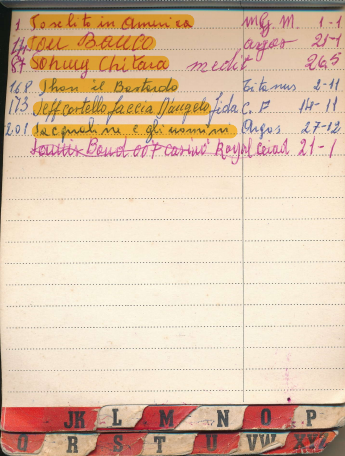 1 Joselito in America M.G.M. 1-1
Tom Banco argos 21-1
87 Johnny Chitara medit 26,5
168 Jhon il Bastardo Titanus 2-11
173 Jeff costello faccia D'angelo fida C. P 14-11
201 Jacqueline e gli uomini Argos 27-12
Jamis Bond 007 casinò Royal Ceiad 21-1
JK L M N O P
Q R S T U VW XYZ